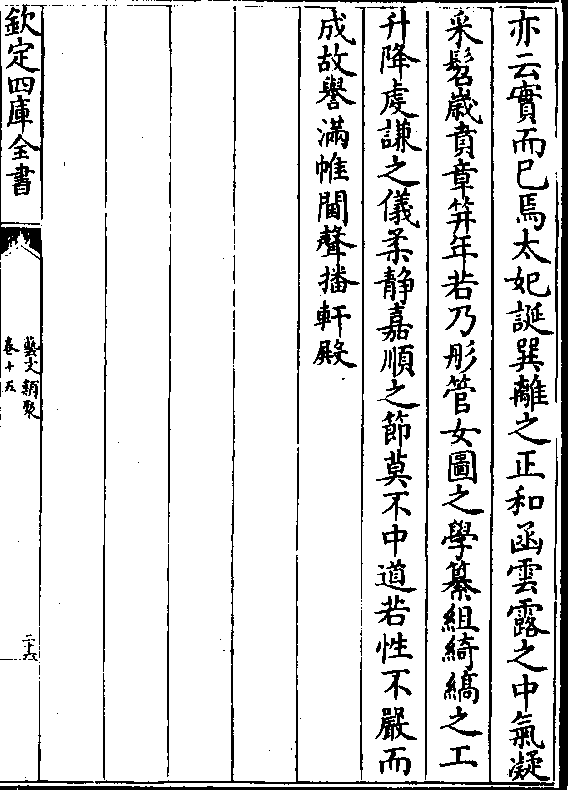 亦云實而已焉太妃誕巽離之正和函雲露之中氣凝
采髫歲賁章笄年若乃彤管女圖之學纂組綺縞之工
升降處謙之儀柔靜嘉順之節莫不中道若性不嚴而
成故譽滿帷閫聲播軒殿
欽定四庫全書
藝文類聚
卷十五
二十六